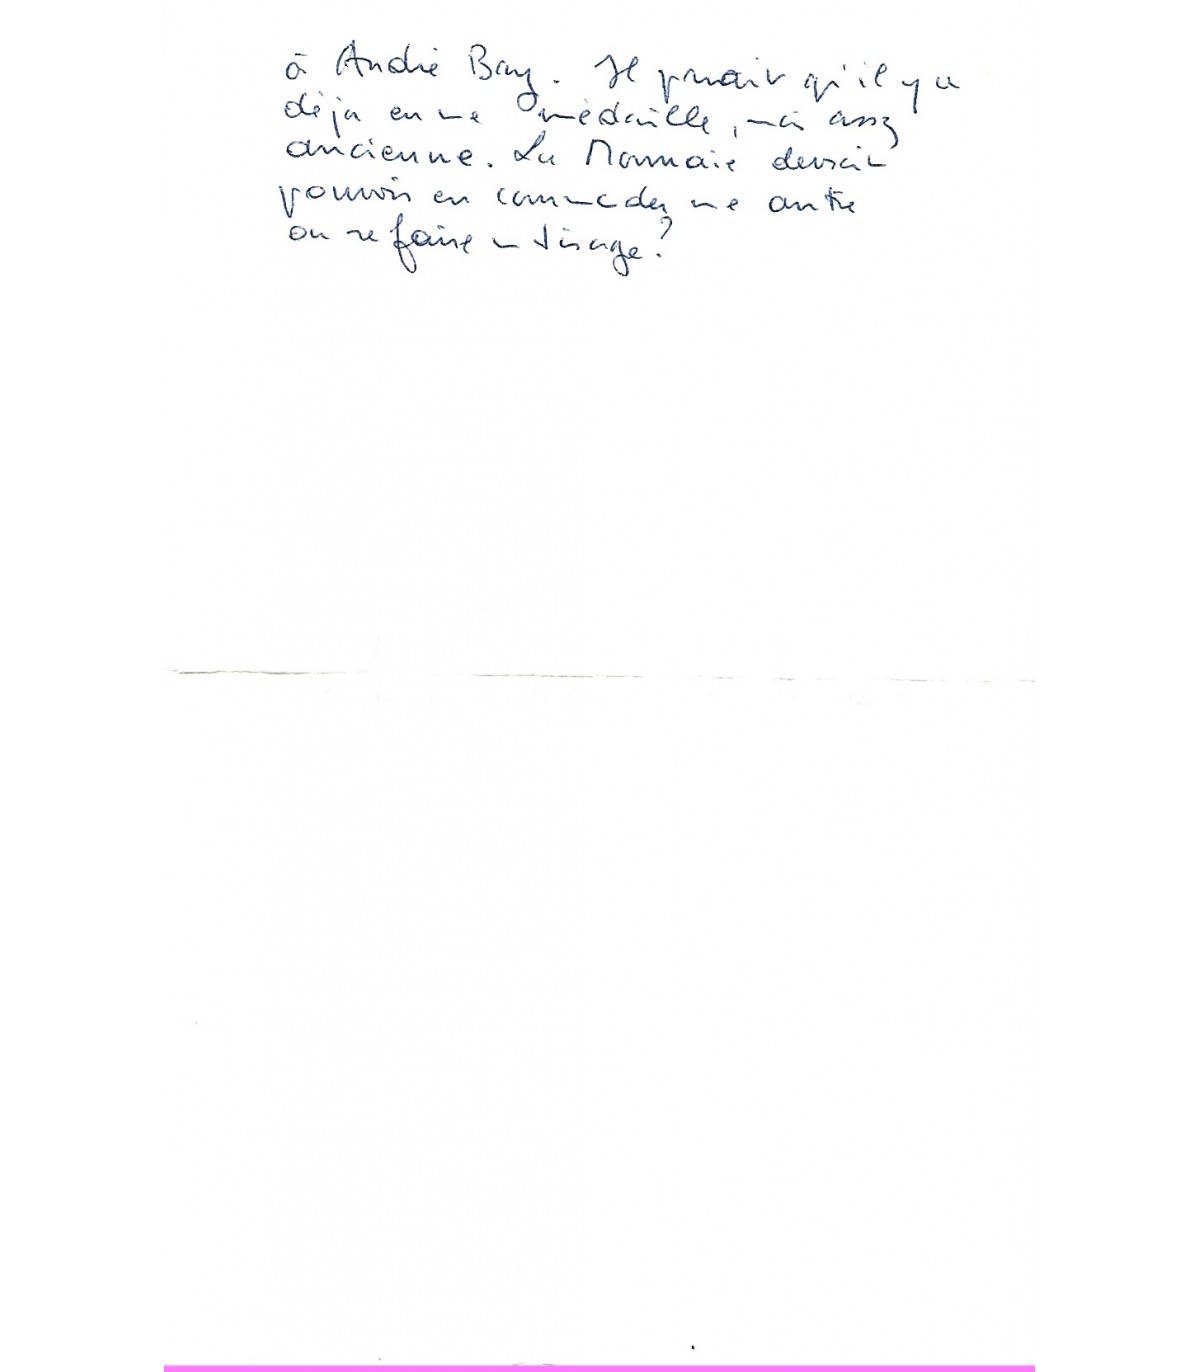 à André Bay. Il paraît qu'il y a
déjà eu une médaille, mais assez
ancienne. La Monnaie devrait
pouvoir en commander une autre
ou refaire un tirage ?